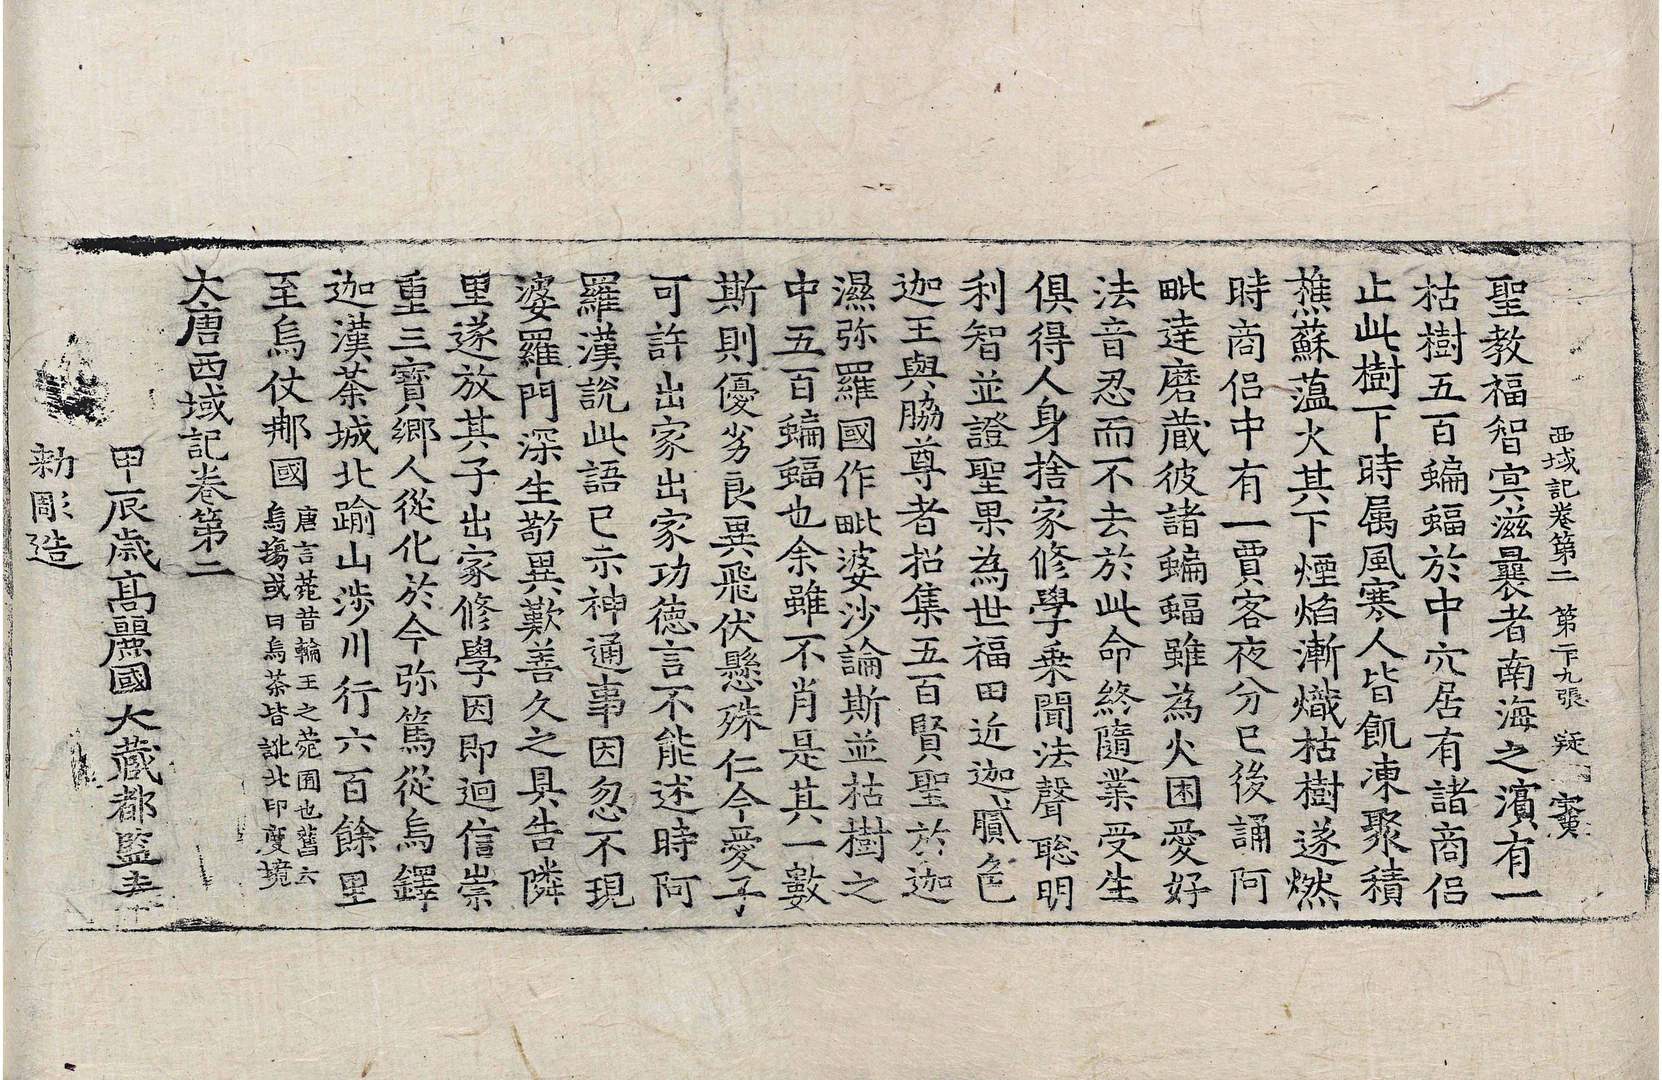 西域記卷第二　第二十九張　疑
聖教福智冥滋曩者南海之濱有一
枯樹五百蝙蝠於中穴居有諸商侶
止此樹下時属風寒人皆飢凍聚積
樵蘇蘊火其下煙焰漸熾枯樹遂燃
時商侶中有一賈客夜分已後誦阿
毗達磨蔵彼諸蝙蝠雖為火困愛好
法音忍而不去於此命終隨業受生
俱得人身捨家修學乗聞法聲聡明
利智並證聖果為世福田近迦膩色
迦王與脇尊者招集五百賢聖於迦
濕弥羅國作毗婆沙論斯並枯樹之
中五百蝙蝠也余雖不肖是其一數
斯則優劣良異飛伏懸殊仁今愛子
可許出家出家功德言不能述時阿
羅漢說此語已示神通事因忽不現
婆羅門深生敬異歎善久之具告隣
里遂放其子出家修學因即迴信崇
重三寳鄉人從化於今弥篤從烏鐸
迦漢荼城北踰山涉川行六百餘里
至烏仗郍國唐言苑昔輪王之苑囿也舊云
烏塲或曰烏荼皆訛北印度境
大唐西域記卷第二
甲辰歳髙麗國大藏都監奉
勑彫造